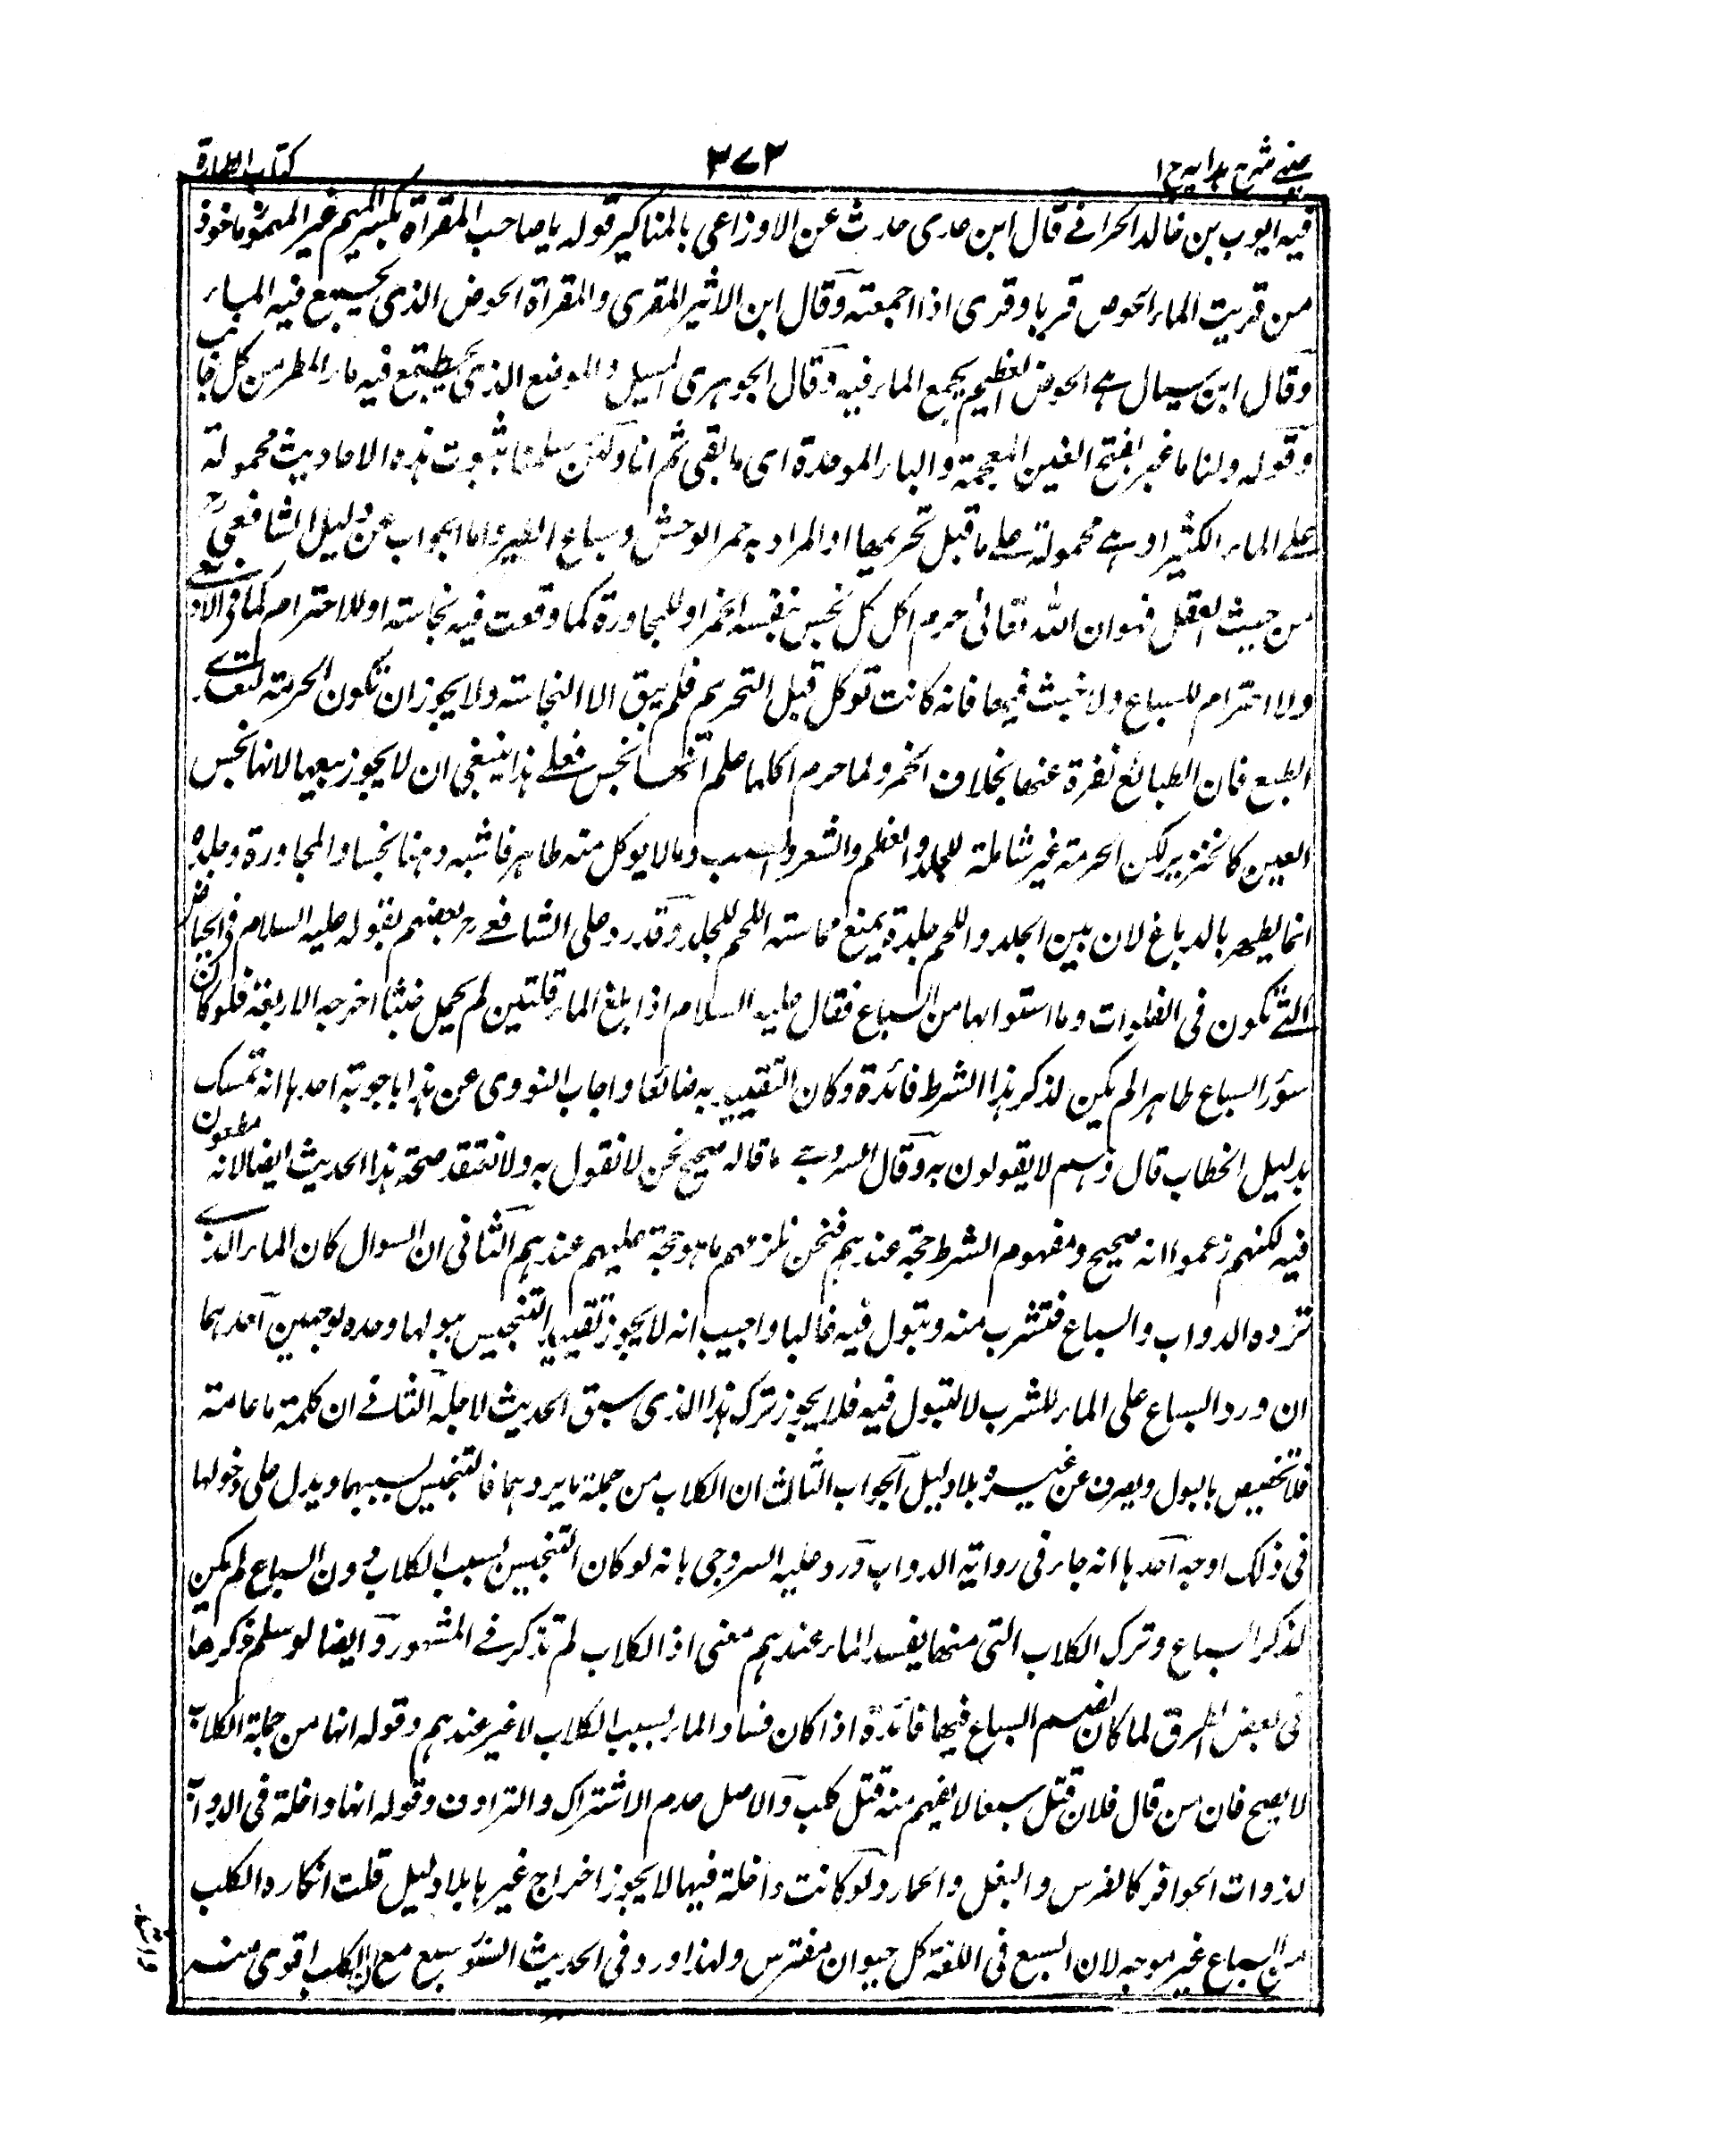 عینی شرح ہدایہ ج ۱
۳۷۳
کتاب الطہارة
فیہ ایوب بن خالد الحرانی قال ابن عدی حدث عن الاوزاعی بالمناکیر قولہ یا صاحب المقراة بکسر المیم غیر المہموز ماخوذ
من قریت الماء الحوض قریا وقری اذا اجمعتہ وقال ابن الاثیر المقری والمقراة الحوض الذی یجتمع فیہ الماء
وقال ابن سیدہ ہی الحوض العظیم یجمع الماء فیہ وقال الجوہری المسیل والموضع الذی یجتمع فیہ ماء المطر من کل جانب
وقولہ ولنا ما غبر بفتح الغین المعجمة والباء الموحدة ای ما بقی ثم انا ولئن سلمنا ثبوت ہذہ الاحادیث محمولة
علی الماء الکثیر او ہی محمولة علی ما قبل تحریمہا او المراد بہ حمر الوحش وسباع الطیر واما الجواب عن دلیل الشافعیؒ
من حیث العقل فہو ان اللہ تعالیٰ حرم اکل کل نجس بنفسہ کالخمر او للمجاورة کما وقعت فیہ نجاستہ او للاحترام کما فی الآدمی
ولا احترام للسباع ولا خبث فیہا فانہ کانت توکل قبل التحریم فلم یبق الا النجاستہ ولا یجوز ان تکون الحرمتہ لعدم
الطبع فان الطبائع نفرة عنہا بخلاف الخمر ولما حرم اکلہا علم انہا نجس فعلی ہذا ینبغی ان لا یجوز بیعہا لانہا نجس
العین کالخنزیر لکن الحرمتہ غیر شاملة للجلد والعظم والشعر والعصب ومالا یوکل منہ طاہر فاشبہ دہنا نجسا والمجاورة وجلدہ
انما یطہر بالدباغ لان بین الجلد واللحم جلدة یمنع مماستہ اللحم للجلد وقد رد علی الشافعی رح بعضہم بقولہ علیہ السلام فی الحیاض
التی تکون فی الفلوات وما استوابہا من السباع فقال علیہ السلام اذا بلغ الماء قلتین لم یحمل خبثا اخرجہ الاربعة فلو کان
سؤر السباع طاہرا لم یکن لذکر ہذا الشرط فائدة وکان التقیید بہ ضائعا واجاب النووی عن ہذا باجوبة احدہا انہ تمسک
بدلیل الخطاب قال وہم لا یقولون بہ وقال السروجی ما قالہ صحیح نحن لا نقول بہ ولا نعتقد صحة ہذا الحدیث ایضا لانہ مطعون
فیہ لکنہم زعموا انہ صحیح ومفہوم الشرط حجة عندہم فنحن نلزمہم ما ہو حجة علیہم عندہم الثانی ان السوال کان الماء الذی
تردہ الدواب والسباع فتشرب منہ وتبول فیہ غالبا واجیب انہ لا یجوز تقیید التنجیس ببولہا وحدہ لوجہین احدہما
ان ورد السباع علی الماء للشرب لا لتبول فیہ فلا یجوز ترک ہذا الذی سبق الحدیث لاجلہ الثانی ان کلمتہ ما عامتہ
فلا تخصیص بالبول ویصرف عن غیرہ بلا دلیل الجواب الثالث ان الکلاب من جملة ما یردہما فالتنجیس بسببہا ویدل علی دخولہا
فی ذلک اوجہ احدہا انہ جاء فی روایتہ الدواب ورد علیہ السروجی بانہ لو کان التنجیس بسبب الکلاب دون السباع لم یکن
لذکر السباع وترک الکلاب التی منہا یفسد الماء عندہم معنی اذ الکلاب لم تذکر فی المشہور وایضا لو سلم ذکرہا
فی بعض الطرق لما کان لضم السباع فیہا فائدة اذا کان فساد الماء بسبب الکلاب لا غیر عندہم وقولہ انہا من جملة الکلاب
لا یصح فان من قال فلان قتل سبعا لا یفہم منہ قتل کلب والاصل عدم الاشتراک والترادف وقولہ انہا داخلة فی الدواب
لذوات الحوافر کالفرس والبغل والحمار ولو کانت داخلة فیہا لا یجوز اخراج غیرہا بلا دلیل قلت انکارہ الکلب
من السباع غیر موجہ لان السبع فی اللغة کل حیوان مفترس ولہذا ورد فی الحدیث السنور سبع مع ان الکلب اقوی منہ